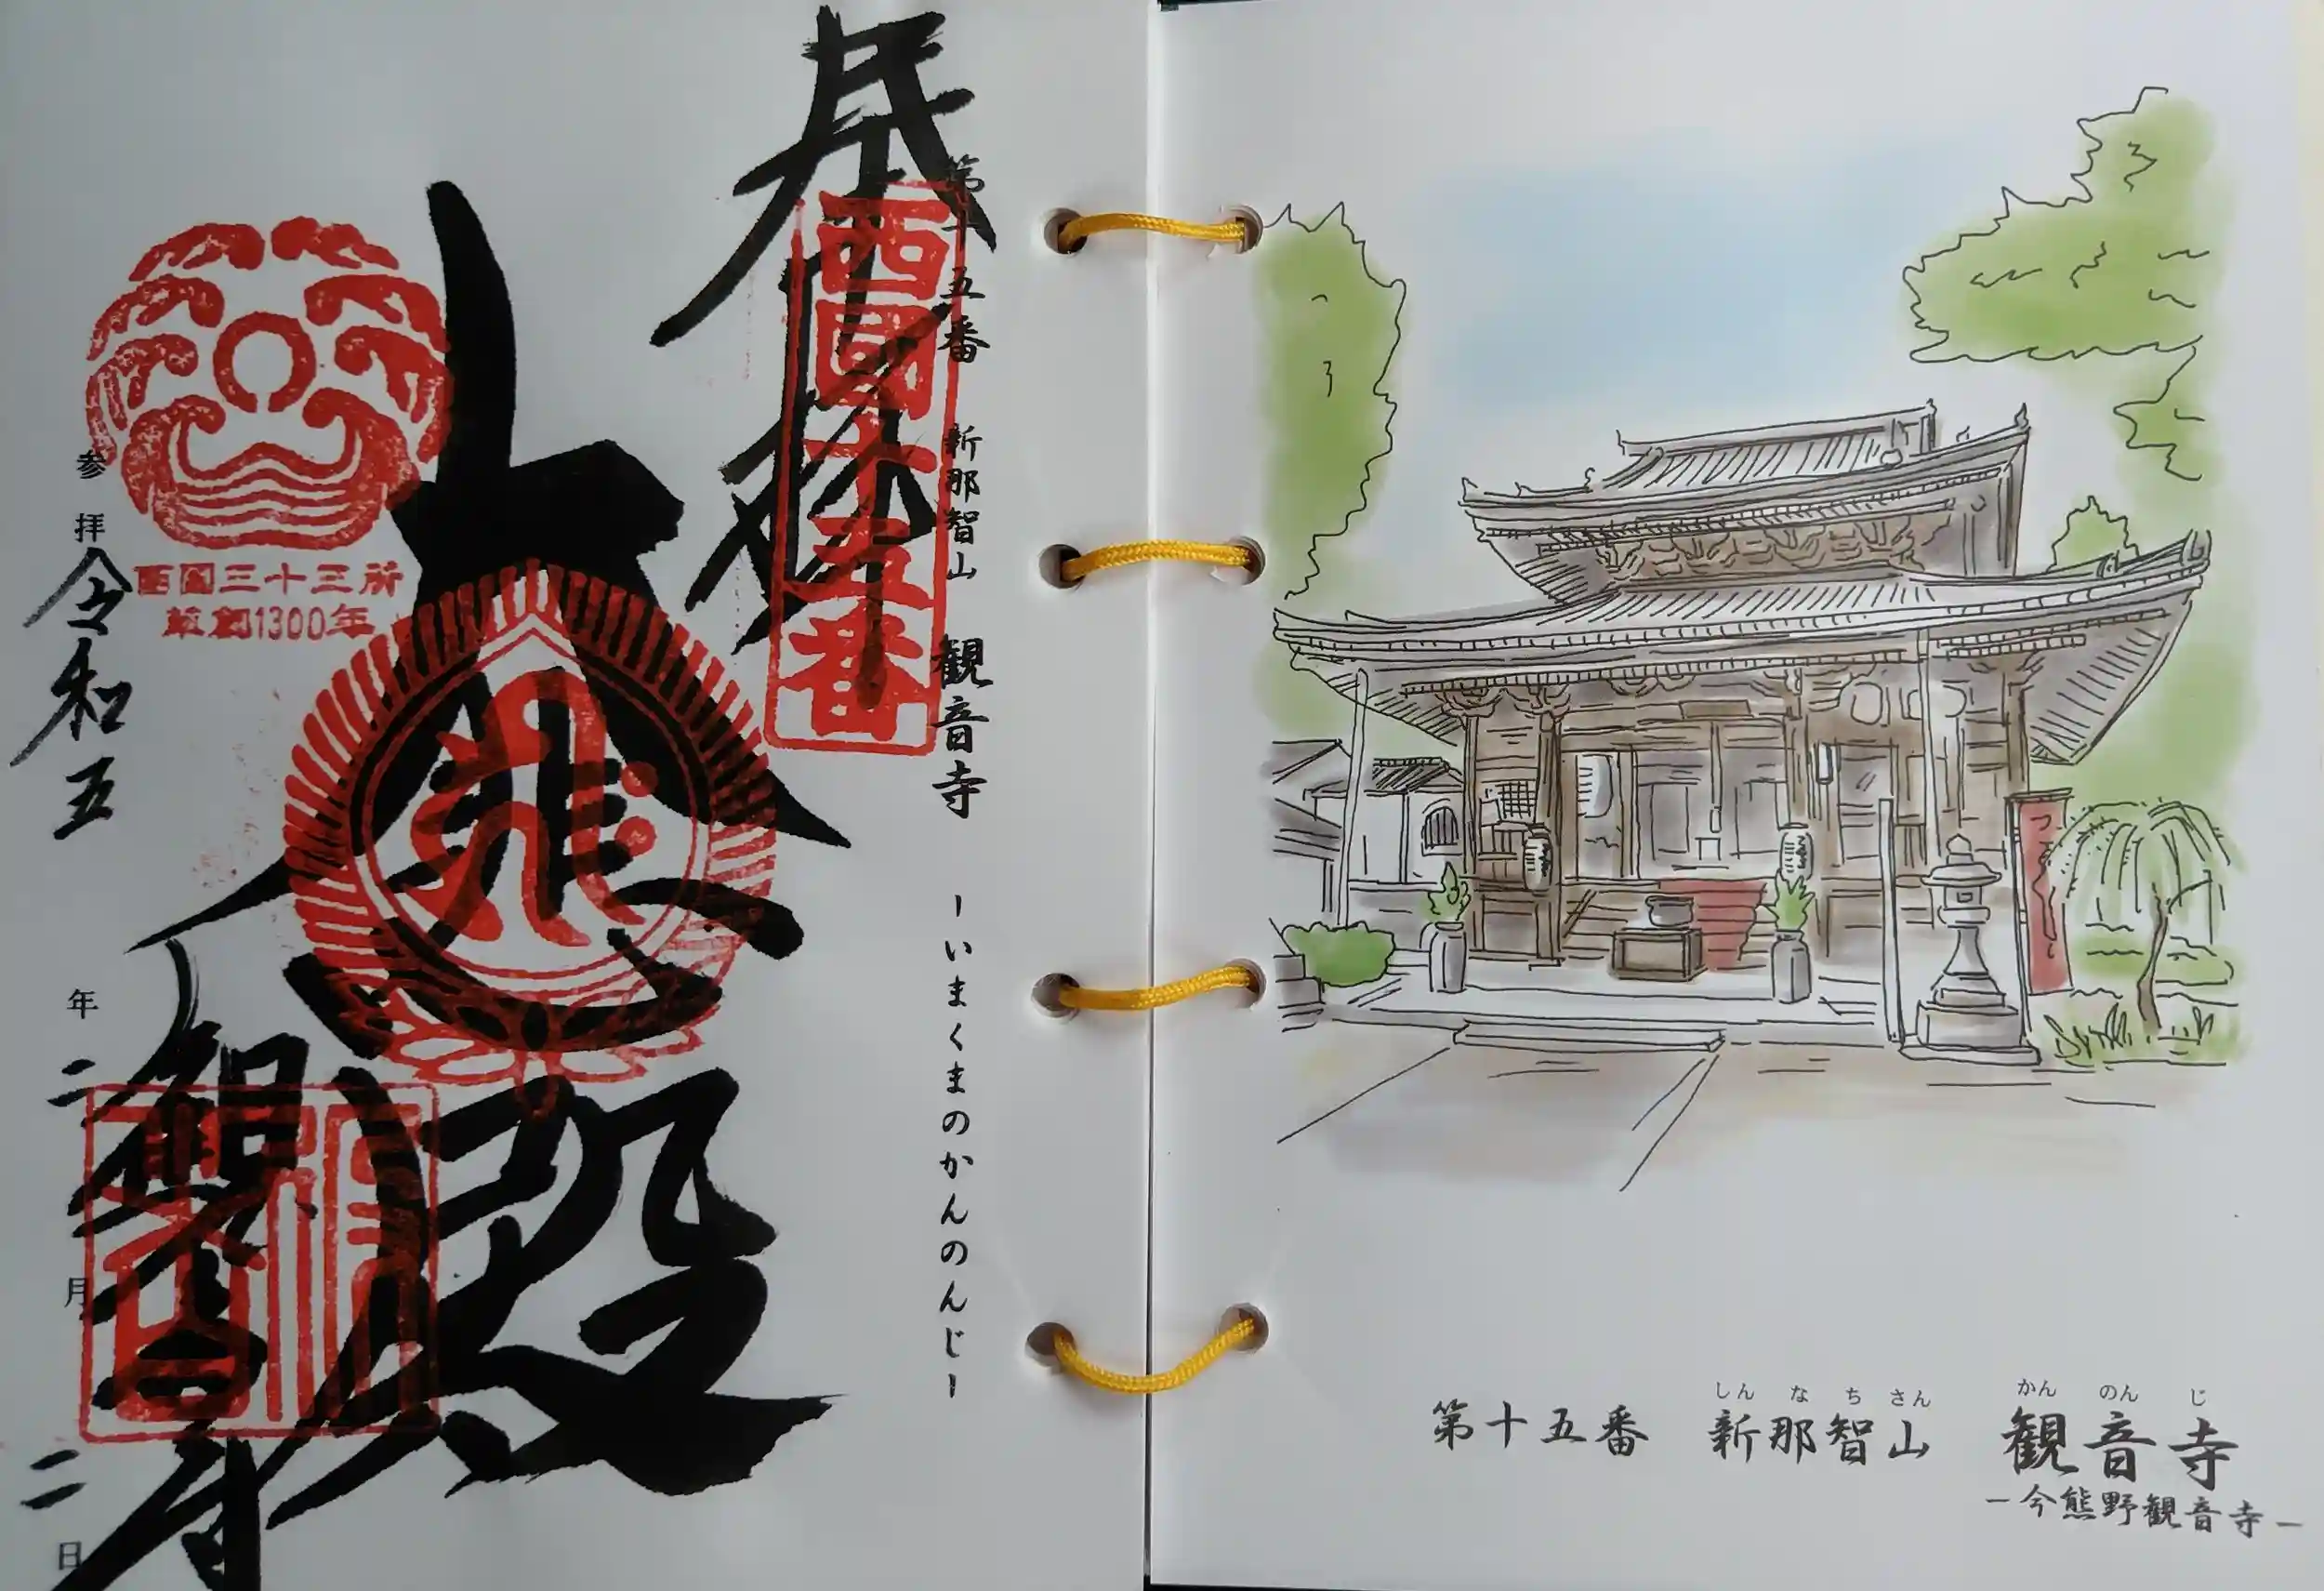 第十五番 新那智山 観音寺 ーいまくまのかんのんじー
奉拝
西國十五番
大悲殿
観音寺
西国三十三所
草創1300年
参拝 令和五年二月二日
第十五番 新那智山 観音寺
しんなちさん かんのんじ
ー今熊野観音寺ー